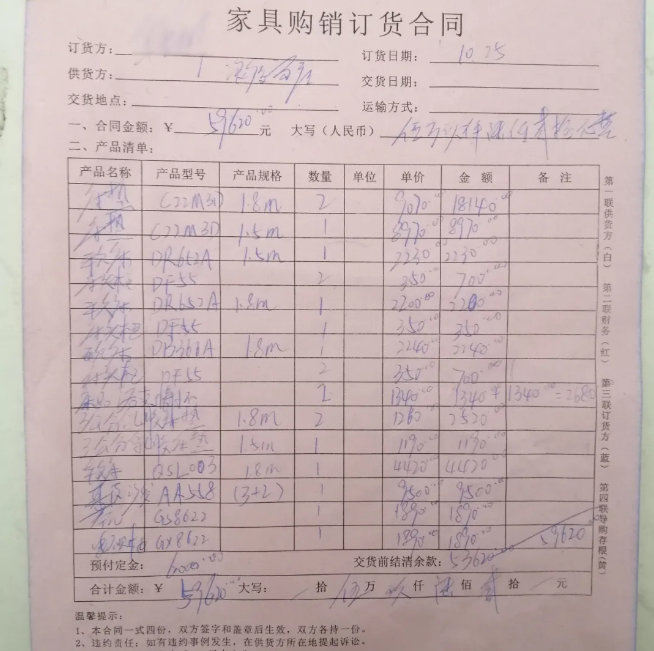 家具购销订货合同
订货方： 订货日期： 10 25
供货方： 交货日期：
交货地点： 运输方式：
一、合同金额：￥ 59620.00 元 大写（人民币）
二、产品清单：
产品名称 产品型号 产品规格 数量 单位 单价 金额 备注
床垫 C22M3D 1.8m 2 9070.00 18140.00
床垫 C22M3D 1.5m 1 8970.00 8970.00
软床 DR652A 1.5m 1 2230.00 2230.00
床头柜 DF55 2 350.00 700.00
软床 DR652A 1.8m 1 2200.00 2200.00
床头柜 DF55 1 350.00 350.00
软床 1.8m 1 2240.00 2240.00
床头柜 DF55 2 350.00 700.00
2 1340.00 1340 + 1340.00 = 2680
床垫 1.8m 2 1260.00 2520.00
床垫 1.5m 1 1190.00 1190.00
软床 QSL003 1.8m 1 4420.00 4420.00
真皮沙发 AA558 (3+2) 1 9500.00 9500.00
茶几 GS8622 1 1890.00 1890.00
电视柜 GX8622 1 1890.00 1890.00 59620.00
预付定金： 6000.00 交货前结清余款： 53620.00
合计金额：￥ 59620.00 大写： 拾 伍 万 玖 仟 陆 佰 贰 拾 元
第一联供货方（白） 第二联财务（红） 第三联订货方（蓝） 第四联导购存根（黄）
温馨提示：
1、本合同一式四份，双方签字和盖章后生效，双方各持一份。
2、违约责任：如有违约事例发生，在供货方所在地提起诉讼。